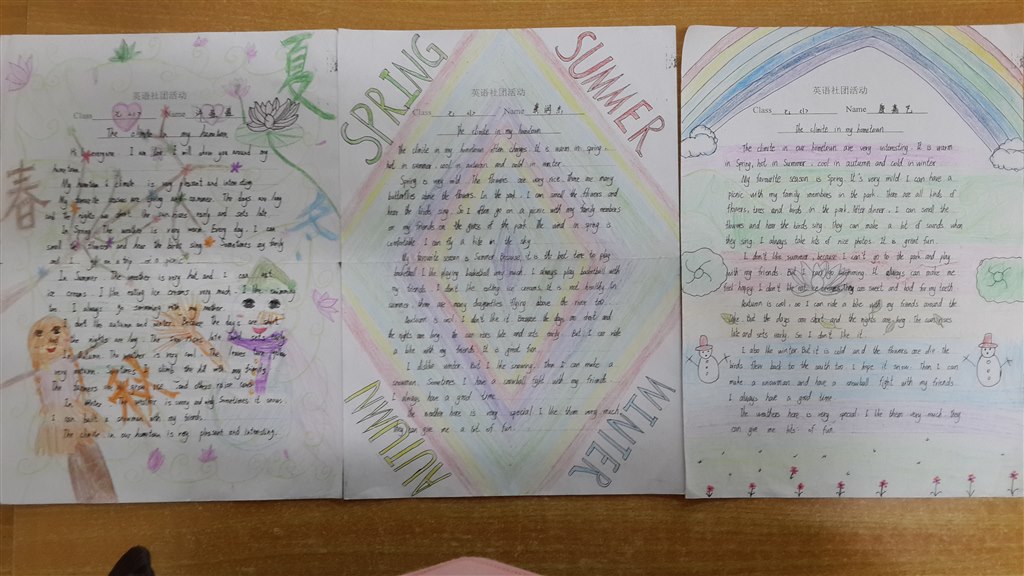 夏
春
冬
秋
英语社团活动
Class Name
The climite in my hometown
Hi everyone. I am I will show you around my
hometown.
My hometown's climate is very pleasant and interesting.
My favourite seasons are spring and summer. The days are long
and the nights are short. The sun rises early and sets late.
In Spring. The weather is very warm. Every day. I can
smell the flowers and hear the birds sing. Sometimes my family
and I go on a trip or a picnic.
In Summer. The weather is very hot and I can eat
ice creams. I like eating ice creams very much. I like swimming
too. I always go swimming with my mother
I don't like autumn and winter. Because the days are short
the nights are long. The sun rises late and sets early
In Autumn. The weather is very cool. The leaves turn
very Sometimes I climb the hill with my friends.
The are great and others
In Winter the weather is Sometimes it snows.
I can build a snowman with my friends.
The climite in our hometown is very pleasant and interesting.
SPRING
SUMMER
AUTUMN
WINTER
英语社团活动
Class Name
The climite in my hometown
The climite in my hometown often changes. It is warm in spring.
hot in summer. cool in autumn and cold in winter.
Spring is very mild. The flowers are very nice. There are many
butterflies above the flowers. In the park. I can smell the flowers and
hear the birds sing. So I often go on a picnic with my family members
or my friends on the grass of the park. The wind in spring is
comfortable. I can fly a kite in the sky.
My favourite season is Summer. Because it is the best time to play
basketball. I like playing basketball very much. I always play basketball with
my friends. I don't like eating ice creams. It is not healthy. In
summer there are many dragonflies flying above the river too.
Autumn is cool. I don't like it. Because the days are short and
the nights are long. The sun rises late and sets early. But. I can ride
a bike with my friends. It is great fun.
I dislike winter. But I like snowing. Then I can make a
snowman. Sometimes I have a snowball fight with my friends.
I always have a good time.
The weather here is very special. I like them very much.
they can give me a lot of fun.
英语社团活动
Class Name
The climite in my hometown
The climite in our hometown are very interesting. It is warm
in Spring, hot in Summer, cool in autumn and cold in winter.
My favourite season is Spring. It's very mild. I can have a
picnic with my family members in the park. There are all kinds of
flowers, trees and birds in the park. After dinner, I can smell the
flowers and hear the birds sing. They can make a lot of sounds when
they sing. I always take lots of nice photos. It is great fun.
I don't like summer, because I can't go to the park and play
with my friends. But I like beginning. It always can make me
feel happy. I don't like ice creams, they can sweet and bad for my teeth
Autumn is cool, so I can ride a bike with my friends around the
lake. But the days are short and the nights are long. The sun rises
late and sets early. So I don't like it.
I also like winter. But it is cold and the flowers are die. the
birds flew back to the south too. I hope it snow. Then I can
make a snowman and have a snowball fight with my friends.
I always have a good time.
The weathers here is very special. I like them very much. they
can give me lots of fun.